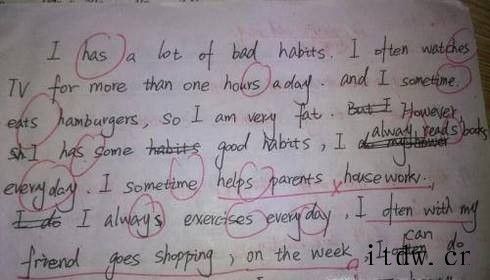 I has a lot of bad habits. I often watches
TV for more than one hours aday. and I sometime.
eats hamburgers, so I am very fat. But I However,
I has some habits good habits, I alway reads books
everyday. I sometime helps parents housework.
I do I always exercises everyday, I often with my
friend goes shopping, on the week I often can do
itdw.cr